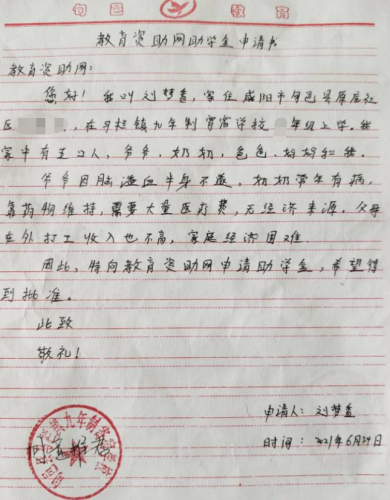 旬邑 教育
教育资助网助学金申请书
教育资助网:
您好! 我叫刘梦
家住咸阳市旬邑县原底社
区 , 在马栏镇九年制寄宿学校 年级上学。我
家中有五口人, 爷爷, 奶奶, 爸爸, 妈妈和我。
爷爷因脑溢血半身不遂, 奶奶常年有病,
靠药物维持, 需要大量医疗费, 无经济来源。父母
在外打工收入也不高, 家庭经济困难.
因此, 特向教育资助网申请助学金, 希望得
到批准。
此致
敬礼!
申请人: 刘梦
时间: 2021年6月29日
九年制寄宿